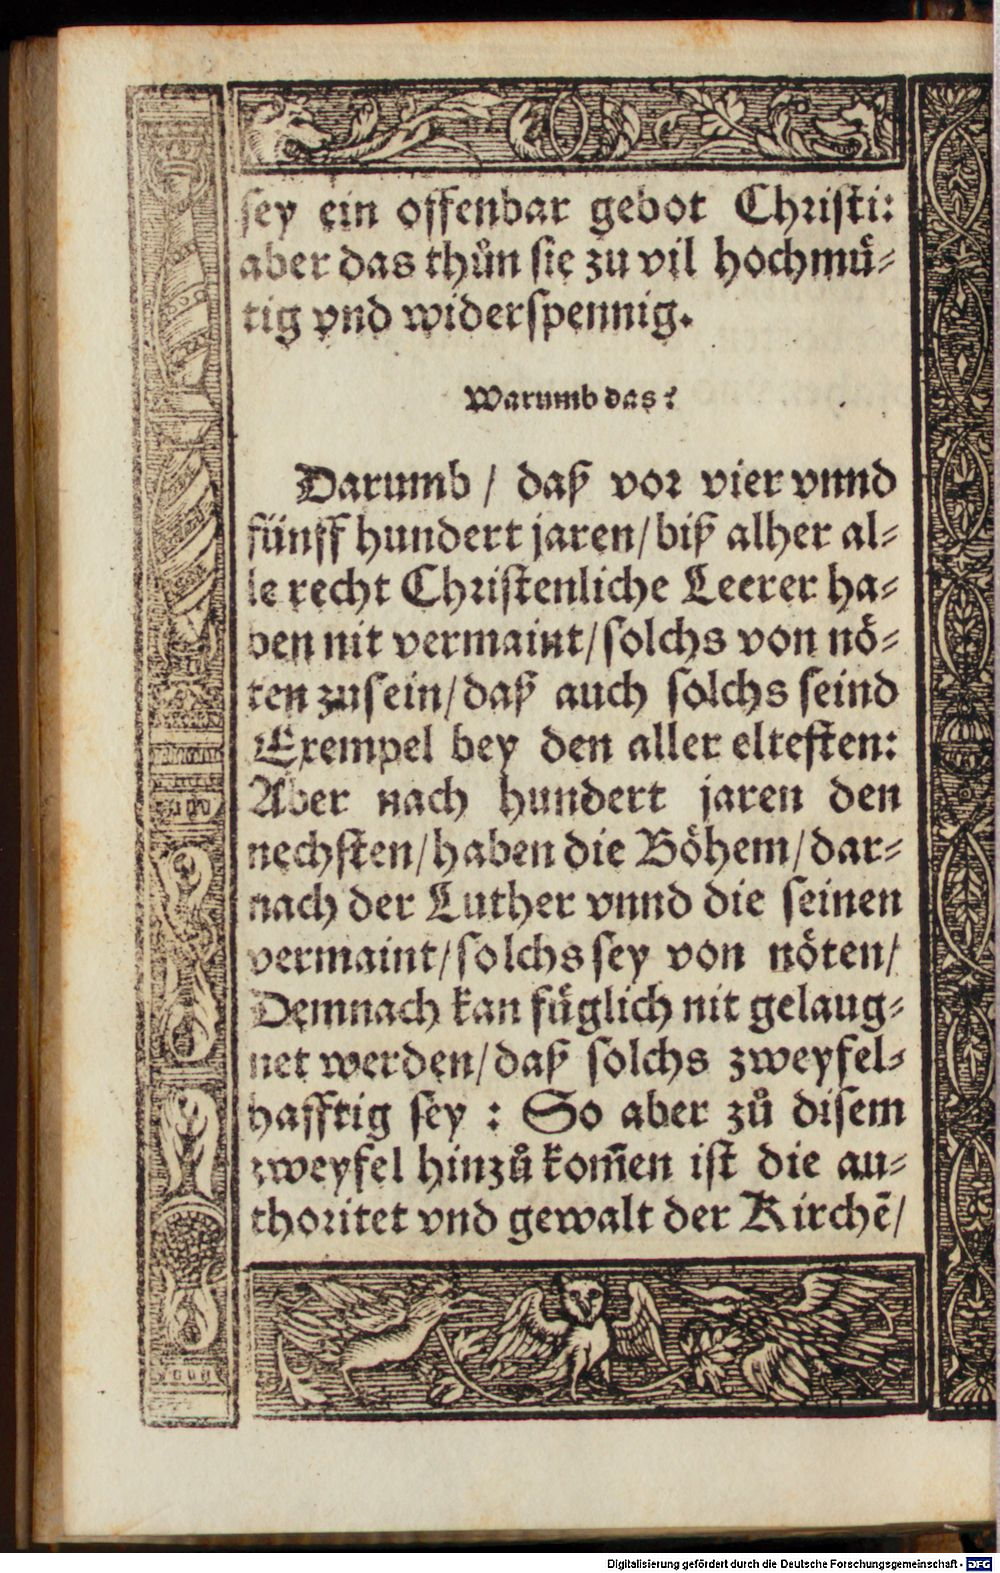 sey ein offenbar gebot Christi:
aber das thůn sie zu vil hochmuͤ-
tig vnd widerspennig.
Warumb das?
Darumb / daß vor vier vnnd
fünff hundert jaren / biß alher al-
le recht Christenliche Leerer ha-
ben nit vermaint / solchs von noͤ-
ten zusein / daß auch solchs seind
Exempel bey den aller eltesten:
Aber nach hundert jaren den
nechsten / haben die Boͤhem / dar-
nach der Luther vnnd die seinen
vermaint / solchs sey von noͤten /
Demnach kan fuͤglich nit gelaug-
net werden / daß solchs zweyfel-
hafftig sey : So aber zů disem
zweyfel hinzů kom̃en ist die au-
thoritet vnd gewalt der Kirchẽ /
Digitalisierung gefördert durch die Deutsche Forschungsgemeinschaft - DFG